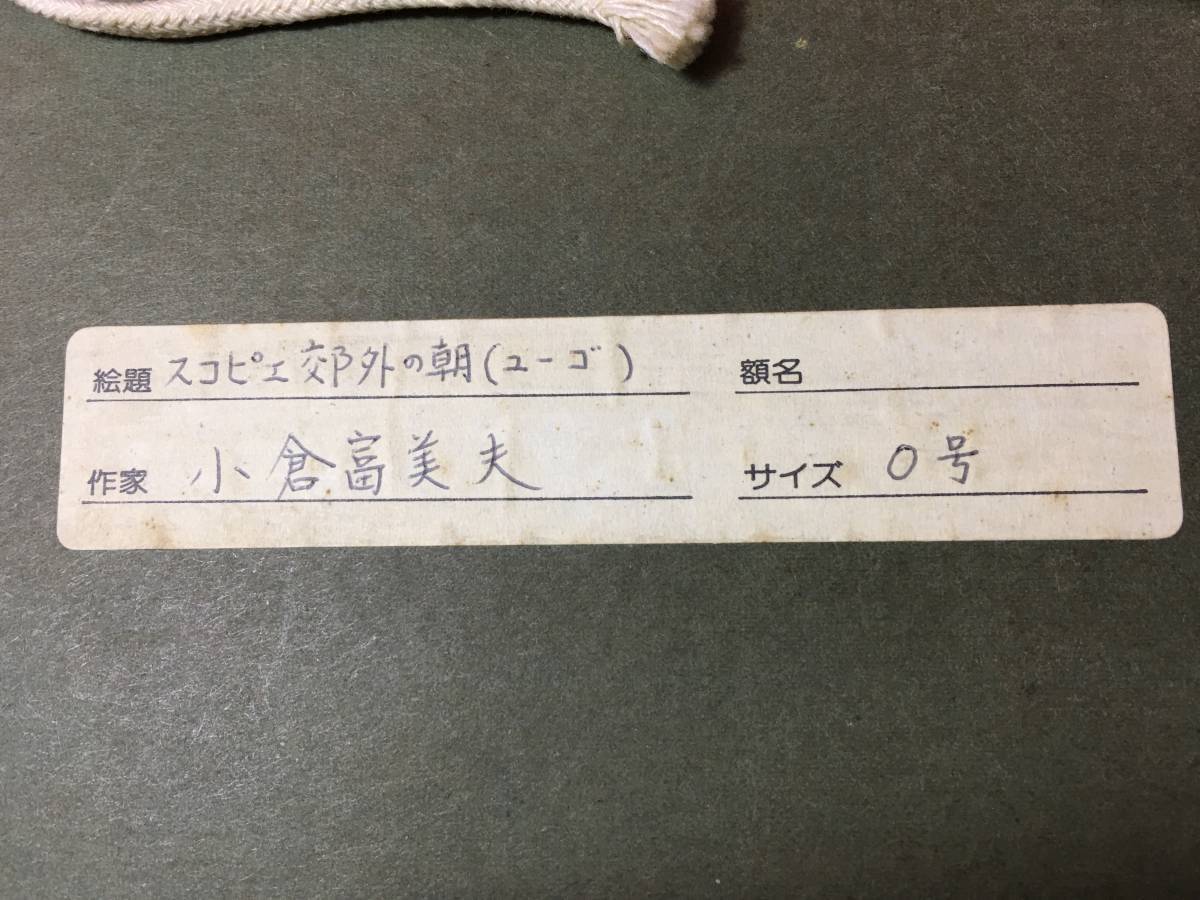 絵題 スコピエ郊外の朝(ユーゴ) 額名
作家 小倉富美夫 サイズ 0号